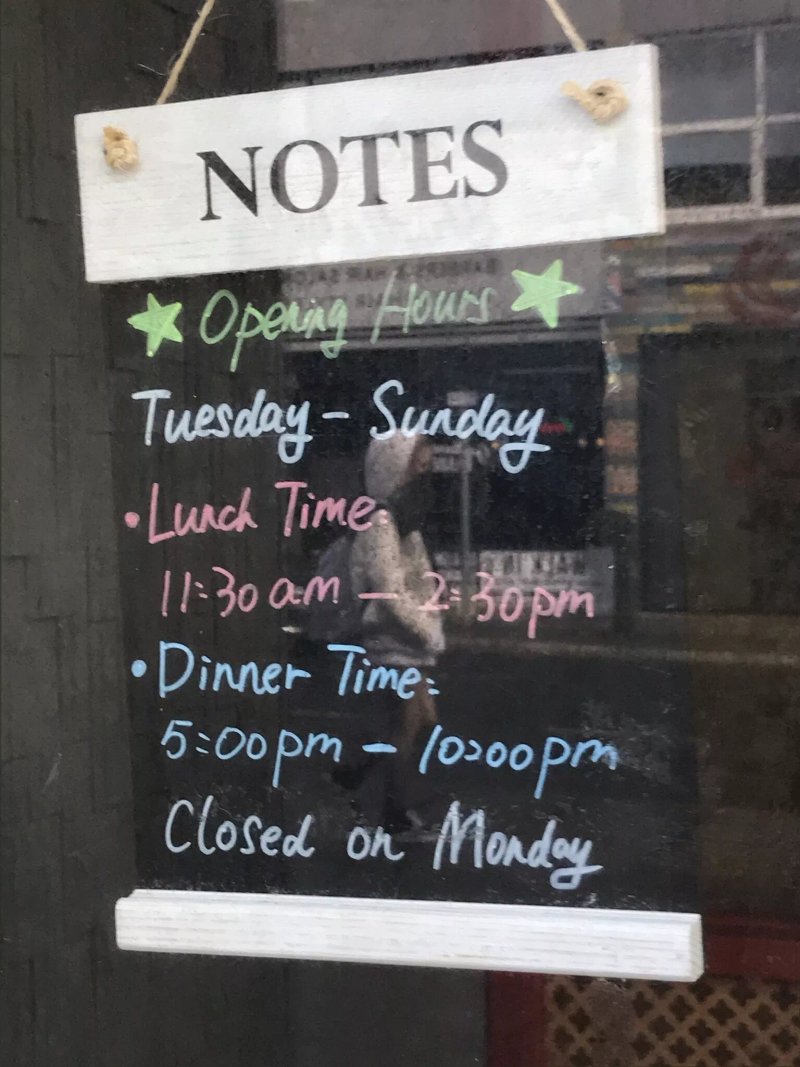 NOTES
Opening Hours
Tuesday - Sunday
• Lunch Time:
11:30am - 2:30pm
• Dinner Time:
5:00pm - 10:00pm
Closed on Monday